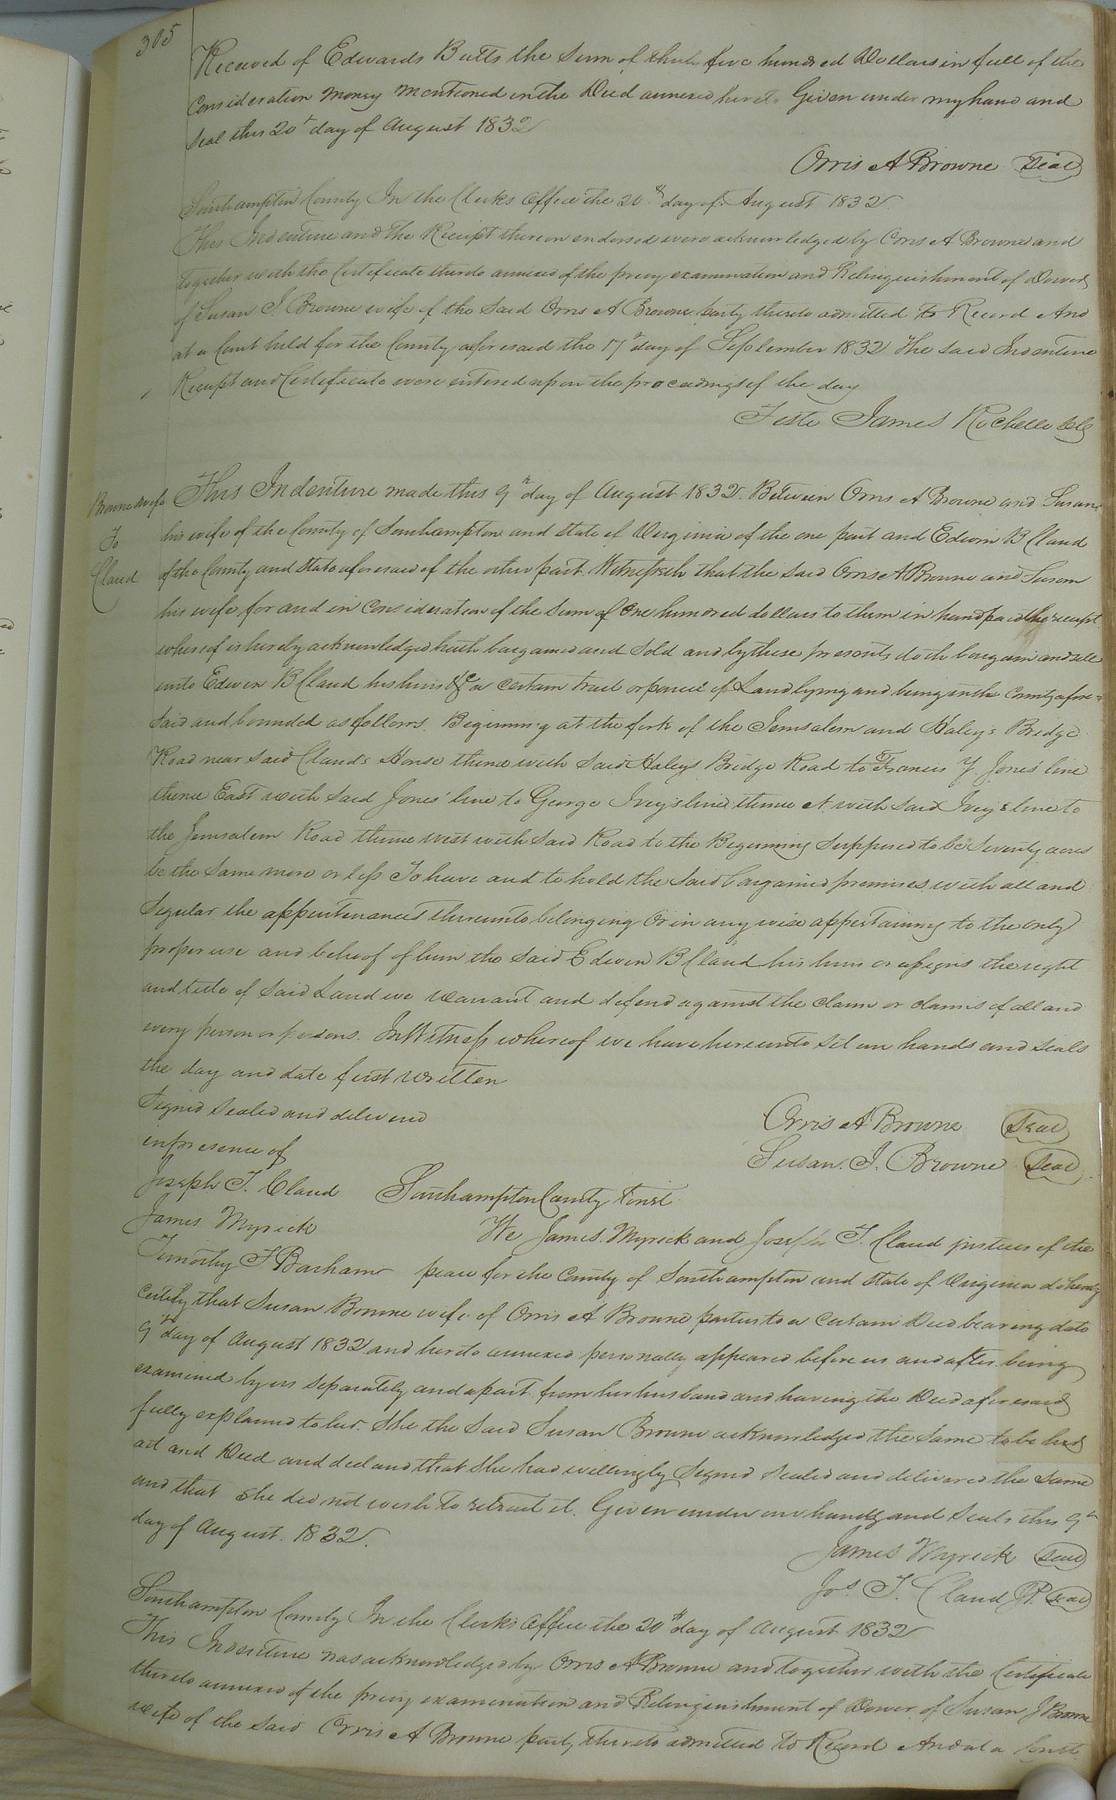 305
Received of Edwards Butts the Sum of thirty five hundred Dollars in full of the
Consideration money mentioned in the Deed annexed hereto Given under my hand and
Seal this 20th day of August 1832
Orris A Browne Seal
Southampton County In the Clerks Office the 20th day of August 1832
This Indenture and the Receipt thereon endorsed were acknowledged by Orris A Browne and
together with the Certificate thereto annexed of the privy examination and Relinquishment of Dower
of Susan J. Browne wife of the said Orris A Browne party thereto admitted to Record And
at a Court held for the County aforesaid the 17th day of September 1832 the said Indenture
Receipt and Certificate were entered upon the proceedings of the day
Teste James Rochelle Clk
Browne & wife
To
Claud
This Indenture made this 9th day of August 1832. Between Orris A Browne and Susan
his wife of the County of Southampton and State of Virginia of the one part and Edwin B Claud
of the County and State aforesaid of the other part. Witnesseth that the said Orris A Browne and Susan
his wife, for and in Consideration of the sum of One hundred dollars to them in hand paid the receipt
whereof is hereby acknowledged hath bargained and sold and by these presents doth bargain and sell
unto Edwin B Claud his heirs &c a certain tract or parcel of Land lying and being in the County afore=
said and bounded as follows. Beginning at the fork of the Jerusalem and Haley's Bridge
Road near said Claud's House thence with said Haleys Bridge Road to Francis Y. Jones' line
thence East with said Jones' line to George Ivey's line thence N. with said Ivey's line to
the Jerusalem Road thence west with said Road to the Beginning Supposed to be Seventy acres
be the same more or less To have and to hold the said bargained premises with all and
Segular the appurtenances thereunto belonging or in any wise appertaining to the only
proper use and behoof of him the said Edwin B Claud his heirs or assigns the right
and title of said Land we warrant and defend against the claim or claims of all and
every person or persons. In Witness whereof we have hereunto set our hands and seals
the day and date first written
Signed Sealed and delivered
in presence of
Orris A Browne Seal
Susan. J. Browne Seal
Joseph T. Claud Southampton County towit
James Myrick We James Myrick and Joseph T. Claud justices of the
Timothy F Barham peace for the County of Southampton and State of Virginia do hereby
Certify that Susan Browne wife of Orris A Browne parties to a Certain Deed bearing date
9th day of August 1832 and hereto annexed personally appeared before us and after being
examined by us separately and apart from her husband and having the Deed aforesaid
fully explained to her. She the said Susan Browne acknowledged the same to be her
act and Deed and declared that she had willingly Signed Sealed and delivered the same
and that she did not wish to retract it. Given under our hands and Seals this 9th
day of August. 1832.
James Myrick Seal
Jos T. Claud JP. Seal
Southampton County In the Clerks Office the 20th day of August 1832
This Indenture was acknowledged by Orris A Browne and together with the Certificate
thereto annexed of the privy examination and Relinquishment of Dower of Susan J Browne
wife of the said Orris A Browne party thereto admitted to Record And at a Court